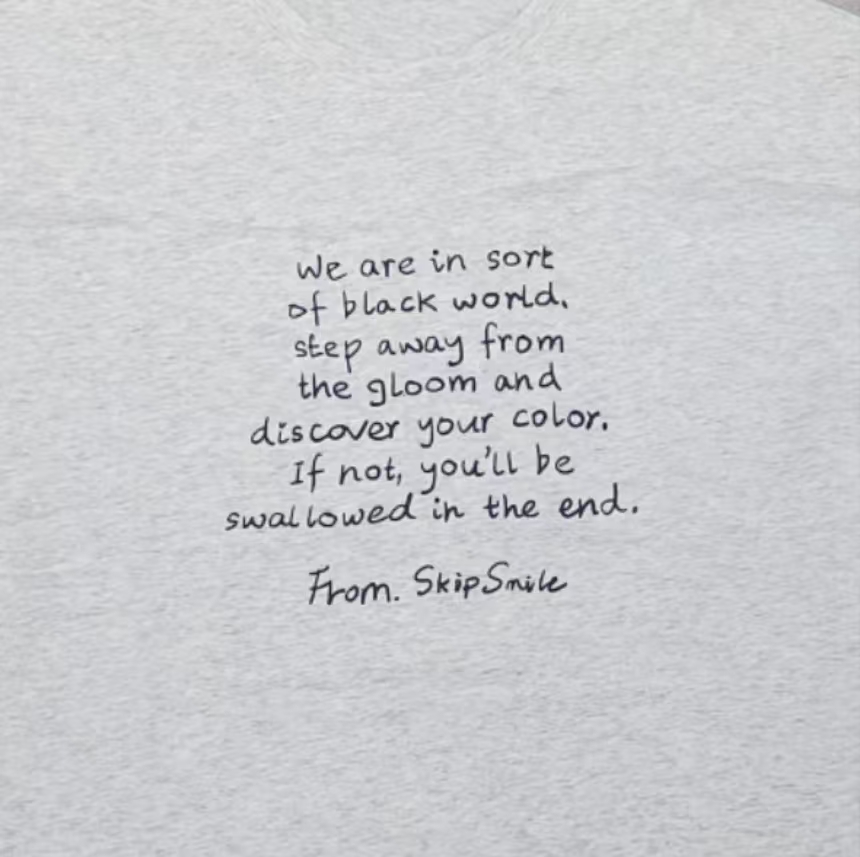 We are in sort
of black world.
step away from
the gloom and
discover your color.
If not, you'll be
swallowed in the end.
From. SkipSmile